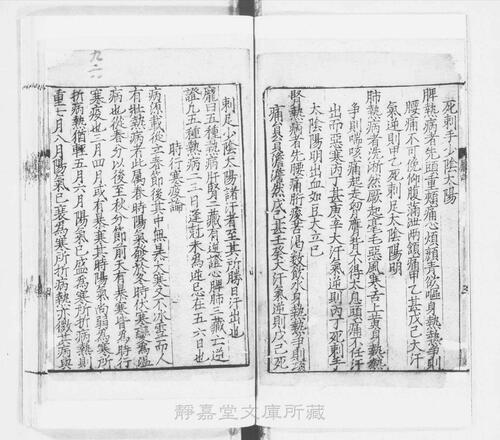 死刺手少陰太陽
脾熱病者先頭重頰痛心煩顏青飲嘔身熱熱爭則
腰痛不可俛仰腹滿泄兩頷痛甲乙甚戊己大汗
氣逆則甲乙死刺足太陰陽明
肺熱病者先淅然厥起毫毛惡風寒舌上黃身熱熱
爭則喘咳痛走胷膺背不得太息頭痛不任汗
出而惡寒丙丁甚庚辛大汗氣逆則丙丁死刺手
太陰陽明出血如豆大立已
腎熱病者先腰痛胻痠苦渴數飲水身熱熱爭則項
痛員員澹澹然戊己甚壬癸大汗氣逆則戊己死
刺足少陰太陽諸汗者至其所勝日汗出也
龐曰五種熱病肝腎二藏有逆證心脾肺三藏亡逆
證凡五種熱病一二日未為逆已在五六日也
時行寒疫論
病源載從立春節後其中無暴大寒又不冰雪而人
有壯熱病者此屬春時陽氣發於冬時伏寒變為溫
病也從春分以後至秋分節前天有暴寒皆為時行
寒疫也三月四月或有暴寒其時陽氣尚弱為寒所
折病熱猶輕五月六月陽氣已盛為寒所折病熱則
重七月八月陽氣已衰為寒所折病熱亦微其病與
靜嘉堂文庫所藏